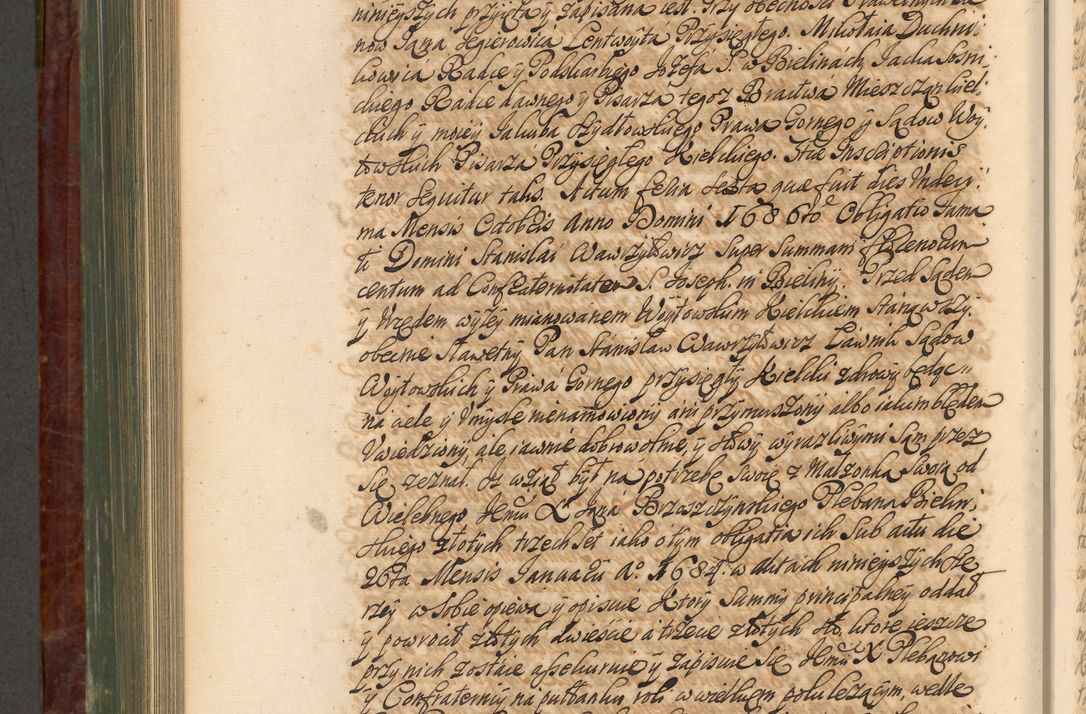 ninieyszych przyięta y zapisana iest. Przy obecności Sławetnych Pa
now Jana Jegierowica Lentwoyta Przysięgłego. Mikołaia Duchni
kowica Radce y Podskarbiego Jozefa S. w Bielinach, Jacka Sosni
ckiego Radce dawnego y Pisarza tegoz Bractwa Mieszczan Kiel,
ckich y moiey Jakuba Szydłowskiego Prawa Gornego y Sądow Woy,
towskich Pisarza Przysięgłego Kielckiego. Hic Inscriptionis
tenor sequitur talis. Actum feria sexta quae fuit dies Undeci,
ma Mensis Octobris Anno Domini 1686to Obligatio Fama
ti Domini Stanislai Wawrzyłowicz Super Summam f Polono dum
centum ad Confraternitatem S. Joseph, in Bieliny. Przed Sądem
y Urzędem wyżey mianowanem Woytowskim Kielckiem Stanąwszy,
obecnie Sławetny Pan Stanisław Wawrzyłowicz Ławnik Sądow
Woytowskich y Prawa Gornego przysięgły Kielcki zdrowy będąc
na ciele y Umyśle nienamowiony ani przymuszony albo iakim błędem
Uwiedziony, ale iawnie dobrowolnie, y słowy wyrazliwymi Sam przez
się zeznał. Iz wziął był na potrzebe swoię z Małzonką Swoią od
Wielebnego Jemci X Jana Brzeszczynskiego Plebana Bielin,
skiego złotych trzech set iako o tym obligatia ich Sub actu die
26ta Mensis Januarii Ao 1684. w aktach ninieyszych sze
rzey w sobie opiewa y opisuie Ktory Summy principalney oddał
y powrocił złotych dwieście a trzecie złotych sto, ktore ieszcze
przy nich zostaie assekuruie y zapisuie się Jemci X Plebanowi
y Confraterniy na pułłanku roli w wielkiem polu lezącym, wedle